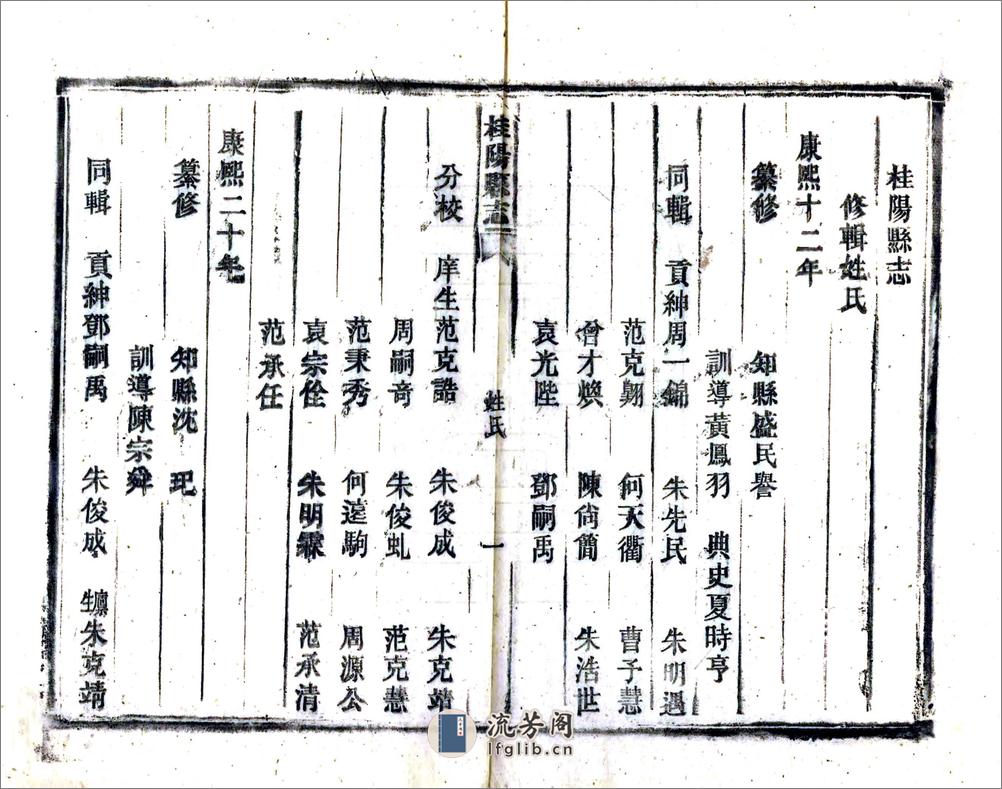 桂陽縣志
修輯姓氏
康熙十二年
纂修 知縣盛民譽
訓導黃鳳羽 典史夏時亨
同輯 貢紳周一錦 朱先民 朱明遇
范克翺 何天衢 曹子慧
曾才煥 陳尙簡 朱浩世
袁光陛 鄧嗣禹
桂陽縣志 姓氏 一
分校 庠生范克誥 朱俊成 朱克靖
周嗣奇 朱俊虬 范克慧
范秉秀 何遠駒 周源公
袁宗佺 朱明霖 范承清
范承任
康熙二十年
纂修 知縣沈玘
訓導陳宗舜
同輯 貢紳鄧嗣禹 朱俊成 廩生朱克靖
流芳阁
lfglib.cn